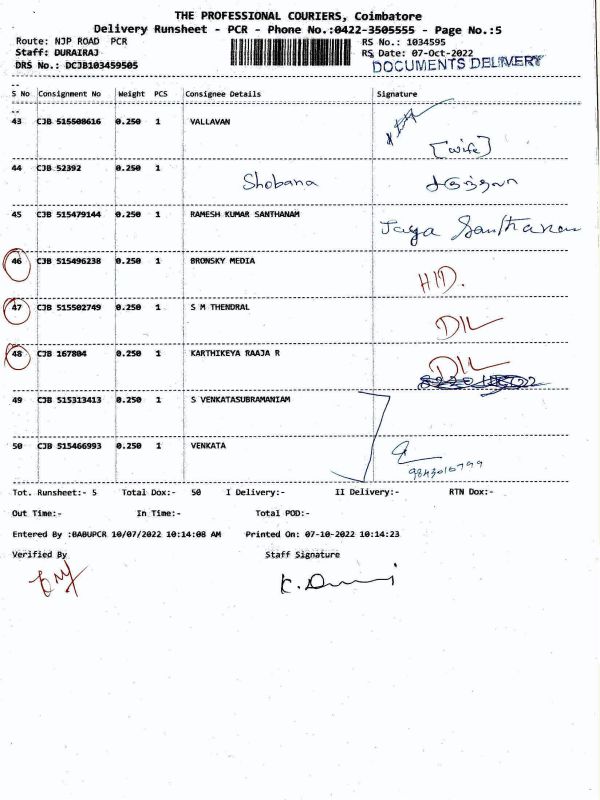 THE PROFESSIONAL COURIERS, Coimbatore
Delivery Runsheet - PCR - Phone No.:0422-3505555 - Page No.:5
Route: NJP ROAD PCR RS No.: 1034595
Staff: DURAIRAJ RS Date: 07-Oct-2022
DRS No.: DCJB103459505 DOCUMENTS DELIVERY
S No Consignment No Weight PCS Consignee Details Signature
43 CJB 515508616 0.250 1 VALLAVAN
[wife]
44 CJB 52392 0.250 1
Shobana
45 CJB 515479144 0.250 1 RAMESH KUMAR SANTHANAM Jaya Santhanam
46 CJB 515496238 0.250 1 BRONSKY MEDIA
H/D.
47 CJB 515502749 0.250 1 S M THENDRAL
D/L
48 CJB 167804 0.250 1 KARTHIKEYA RAAJA R
D/L
49 CJB 515313413 0.250 1 S VENKATASUBRAMANIAM
50 CJB 515466993 0.250 1 VENKATA
9843010799
Tot. Runsheet:- 5 Total Dox:- 50 I Delivery:- II Delivery:- RTN Dox:-
Out Time:- In Time:- Total POD:-
Entered By :BABUPCR 10/07/2022 10:14:08 AM Printed On: 07-10-2022 10:14:23
Verified By Staff Signature